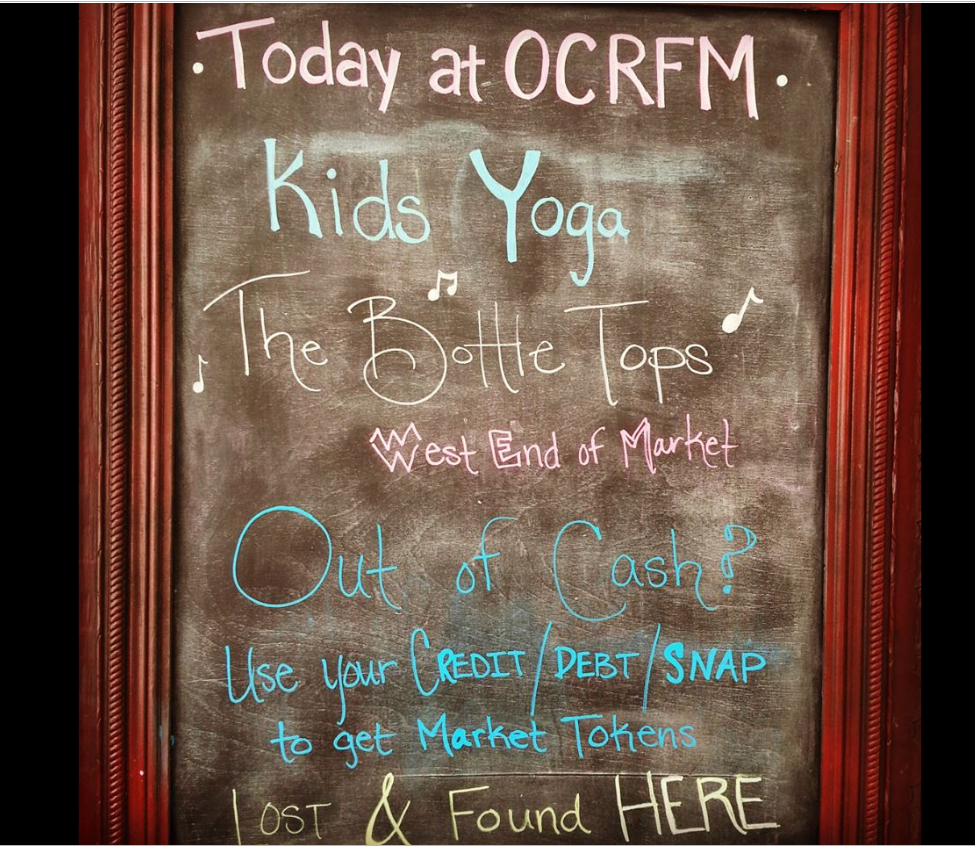 Today at OCRFM
Kids Yoga
The Bottle Tops
West End of Market
Out of Cash?
Use your CREDIT/DEBT/SNAP
to get Market Tokens
LOST & Found HERE